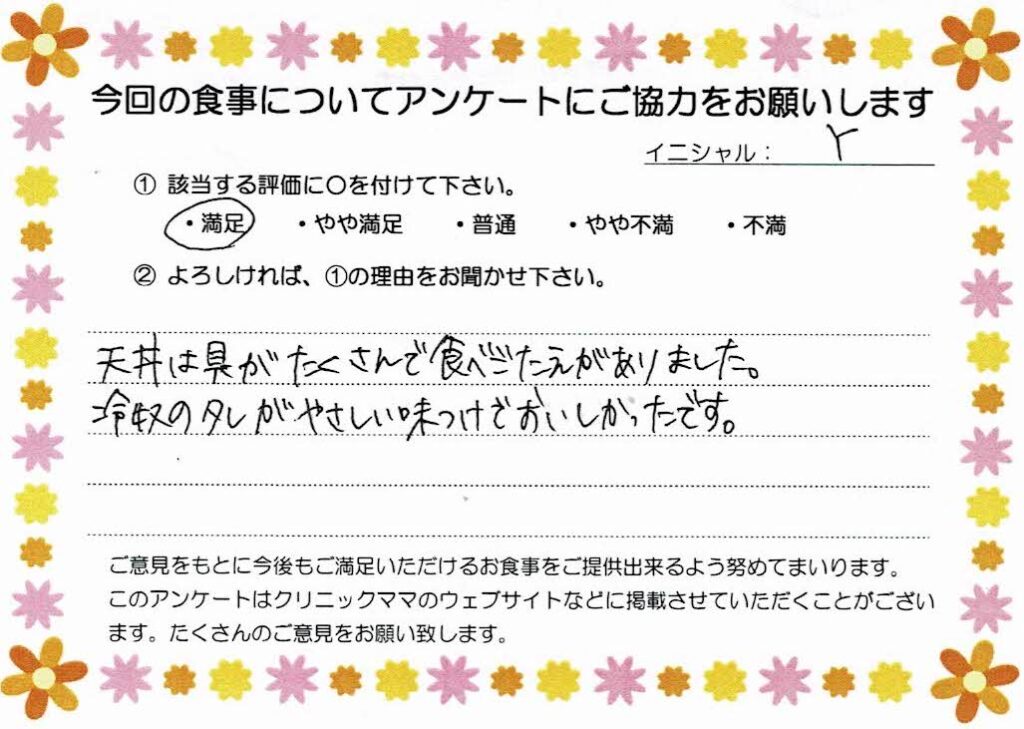 今回の食事についてアンケートにご協力をお願いします
イニシャル： Y
① 該当する評価に〇を付けて下さい。
・満足 ・やや満足 ・普通 ・やや不満 ・不満
② よろしければ、①の理由をお聞かせ下さい。
天丼は具がたくさんで食べごたえがありました。
冷奴のタレがやさしい味つけでおいしかったです。
ご意見をもとに今後もご満足いただけるお食事をご提供出来るよう努めてまいります。
このアンケートはクリニックママのウェブサイトなどに掲載させていただくことがござい
ます。たくさんのご意見をお願い致します。